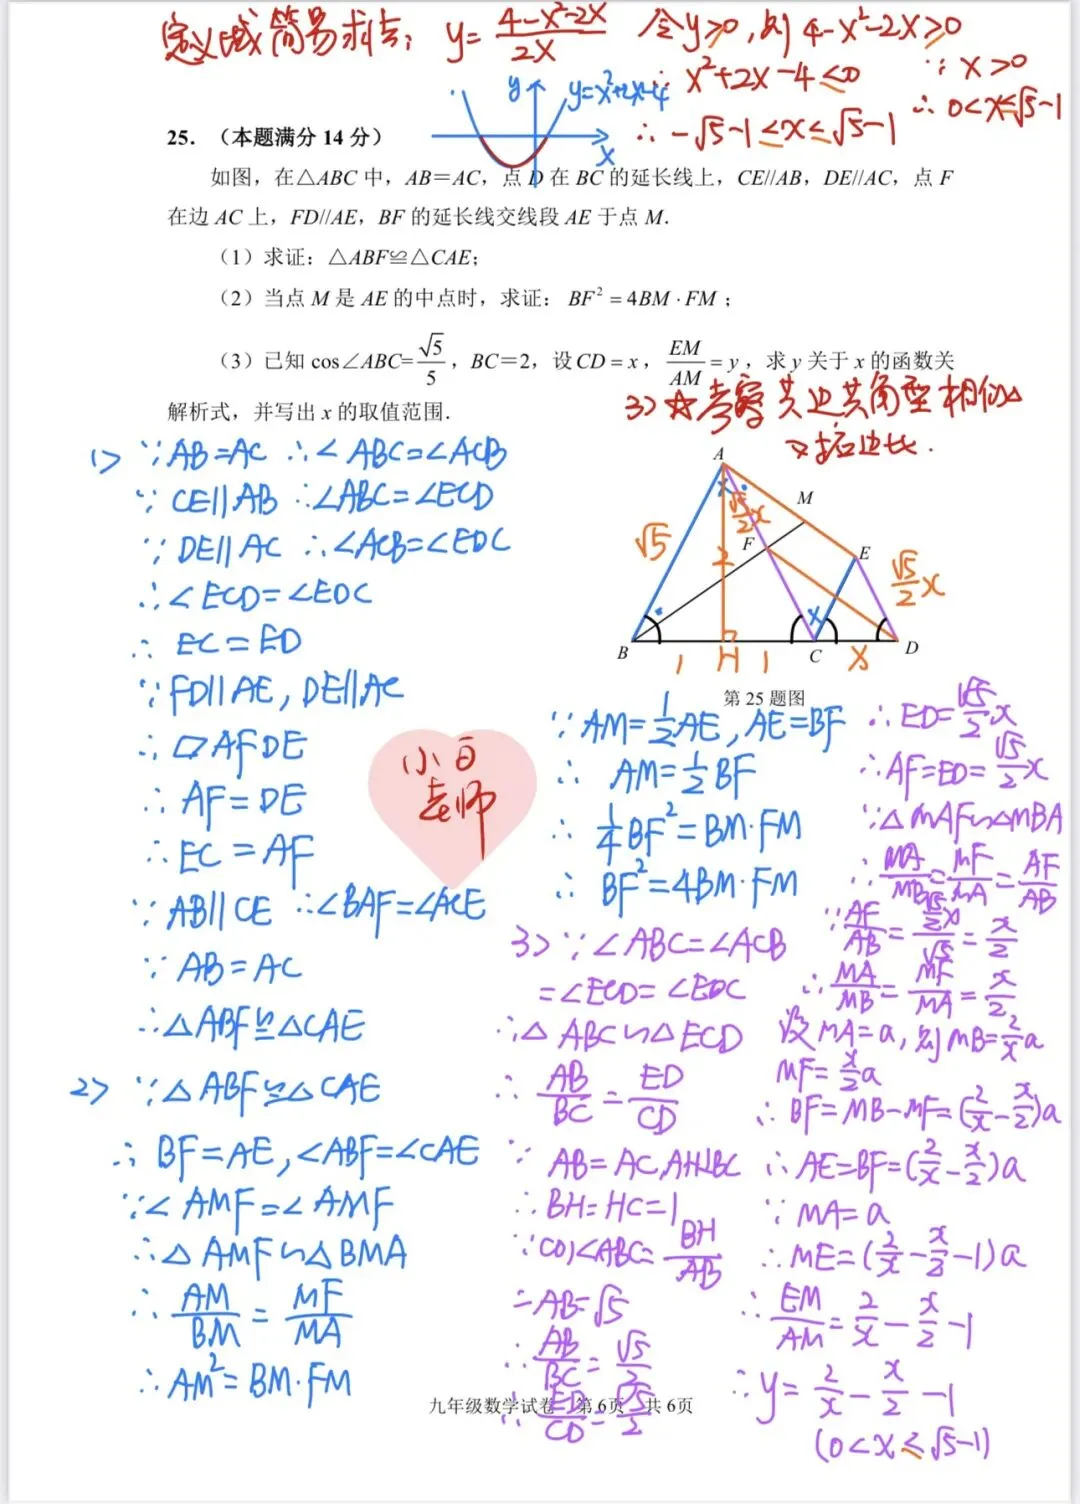 定义域简易求法; y=(4-x²-2x)/(2x) 令y≥0,则4-x²-2x≥0
∴ x²+2x-4≤0 ∵ x>0
∴ -√5-1≤x≤√5-1 ∴ 0<x≤√5-1
y y=x²+2x-4
x
25. （本题满分 14 分）
如图，在△ABC 中，AB＝AC，点 D 在 BC 的延长线上，CE//AB，DE//AC，点 F
在边 AC 上，FD//AE，BF 的延长线交线段 AE 于点 M．
（1）求证：△ABF≌△CAE；
（2）当点 M 是 AE 的中点时，求证：BF²＝4BM·FM；
（3）已知 cos∠ABC=√5/5，BC＝2，设CD＝x，EM/AM＝y，求 y 关于 x 的函数关
解析式，并写出 x 的取值范围．
3>☆考察共边共角型相似△
标边长.
1> ∵AB=AC ∴∠ABC=∠ACB
∵ CE∥AB ∴∠ABC=∠ECD
∵ DE∥AC ∴∠ACB=∠EDC
∴∠ECD=∠EDC
∴ EC=ED
∵FD∥AE, DE∥AC
∴▱AFDE
∴ AF=DE
∴EC=AF
∵ AB∥CE ∴∠BAF=∠ACE
∵ AB=AC
∴△ABF≌△CAE
2> ∵△ABF≌△CAE
∴ BF=AE,∠ABF=∠CAE
∵∠AMF=∠AMF
∴△AMF∽△BMA
∴ AM/BM=MF/MA
∴AM²=BM·FM
A
M
F
E
B
H
C
D
√5
√5/2 x
2
x
√5/2 x
1
1
x
第 25 题图
小白
老师
∵AM=1/2AE,AE=BF
∴ AM=1/2BF
∴ 1/4BF²=BM·FM
∴ BF²=4BM·FM
3>∵∠ABC=∠ACB
=∠ECD=∠EDC
∴△ABC∽△ECD
∴ AB/BC=ED/CD
∵ AB=AC,AH⊥BC
∴BH=HC=1
∵cos∠ABC=BH/AB
∴AB=√5
∴AB/BC=√5/2
∴ED/CD=√5/2
∴ED=√5/2 x
∴AF=ED=√5/2 x
∵△MAF∽△MBA
∴ MA/MB=MF/MA=AF/AB
∵AF/AB=(√5/2 x)/√5=x/2
∴MA/MB=MF/MA=x/2
设MA=a,则MB=2/x a
MF=x/2 a
∴BF=MB-MF=(2/x-x/2)a
∴AE=BF=(2/x-x/2)a
∵ MA=a
∴ME=(2/x-x/2-1)a
∴EM/AM=2/x-x/2-1
∴y=2/x-x/2-1
(0<x≤√5-1)
九年级数学试卷 第 6页 共 6页